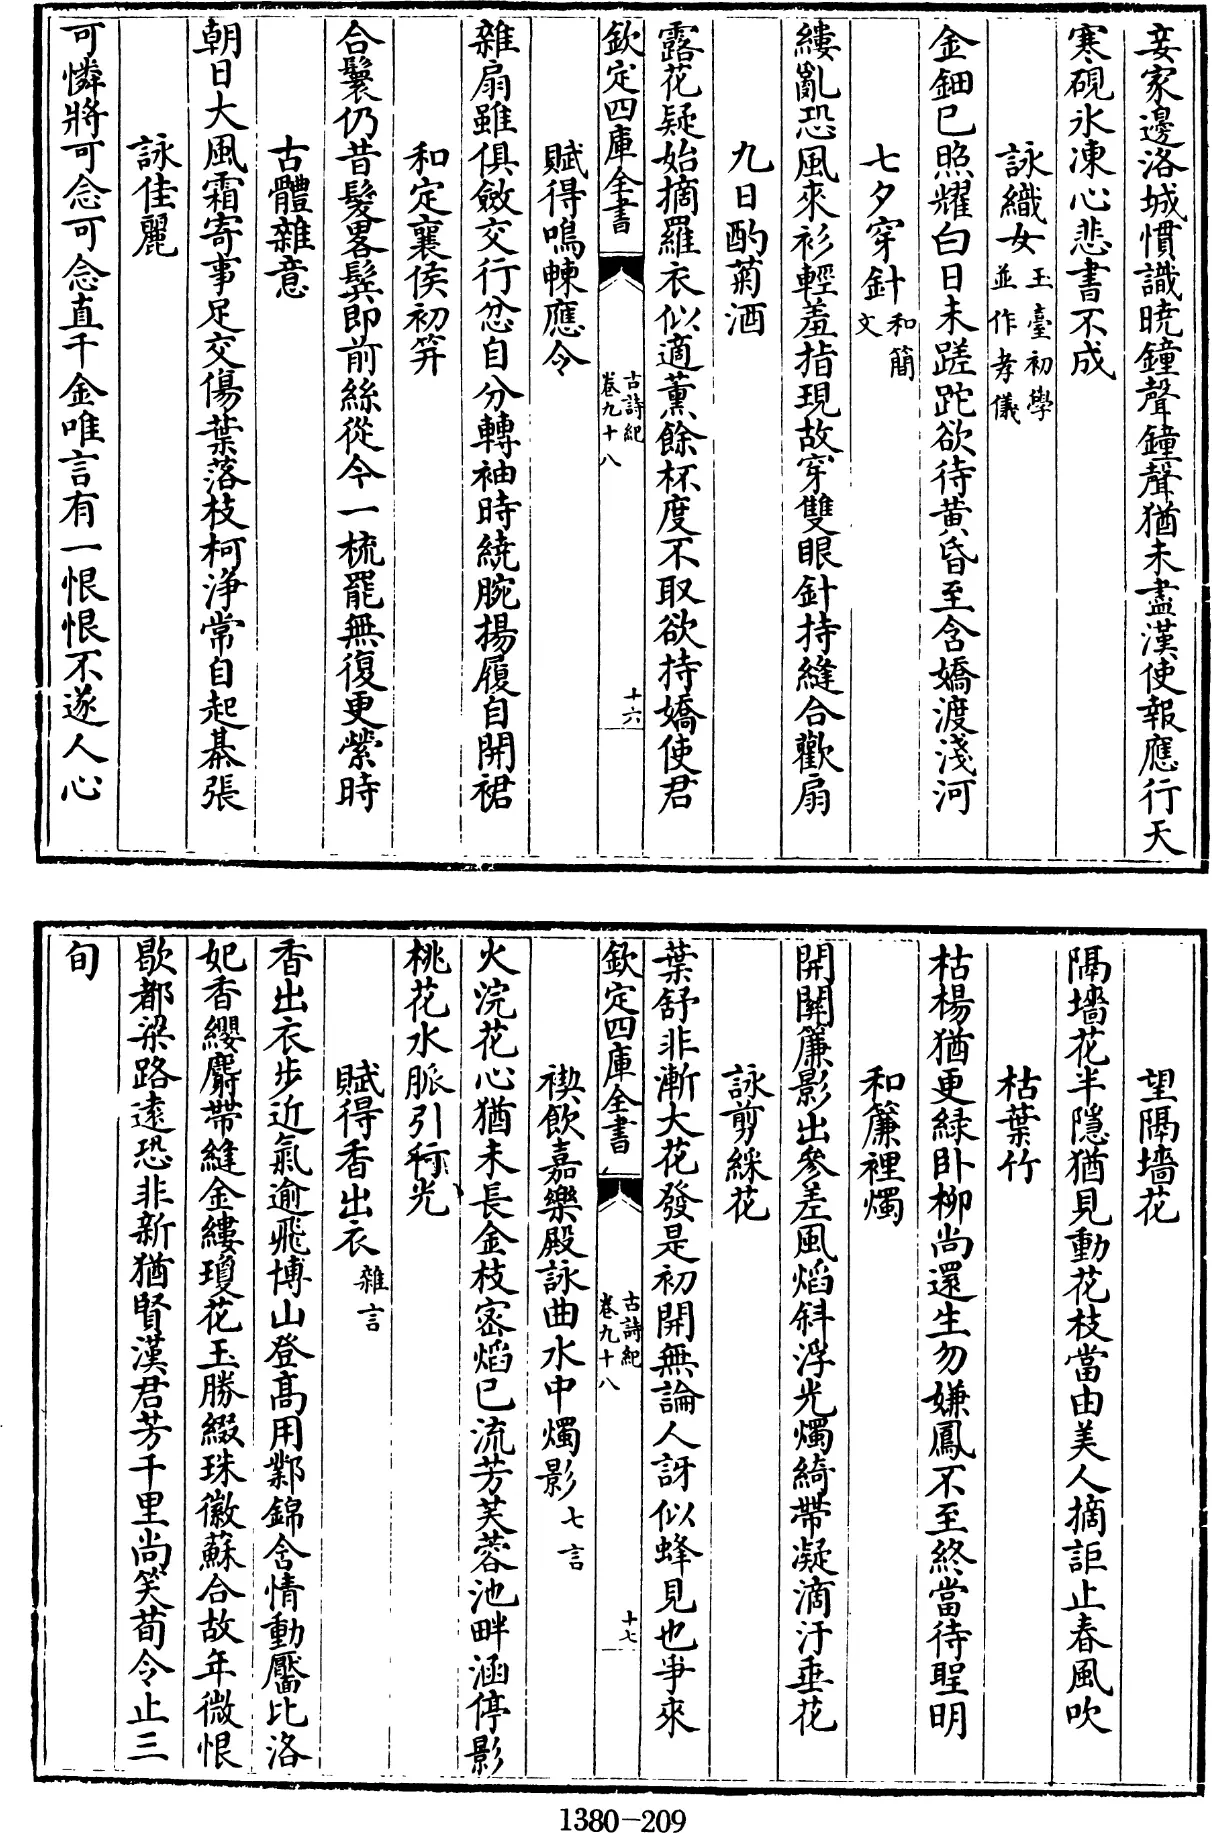 妾家邊洛城慣識曉鐘聲鐘聲猶未盡漢使報應行天
寒硯氷凍心悲書不成
詠織女 玉臺初學並作孝儀
金鈿已照耀白日未蹉跎欲待黃昏至含嬌渡淺河
七夕穿針 和簡文
縷亂恐風來衫輕羞指現故穿雙眼針持縫合歡扇
九日酌菊酒
露花疑始摘羅衣似適薰餘杯度不取欲持嬌使君
欽定四庫全書 古詩紀卷九十八 十六
賦得鳴㡓應令
雜扇雖俱斂交行忿自分轉袖時繞腕揚履自開裙
和定襄侯初笄
合鬟仍昔髮畧鬂即前絲從今一梳罷無復更縈時
古體雜意
朝日大風霜寄事足交傷葉落枝柯淨常自起棊張
詠佳麗
可憐將可念可念直千金唯言有一恨恨不遂人心
望隔墻花
隔墻花半隱猶見動花枝當由美人摘詎止春風吹
枯葉竹
枯楊猶更緑卧栁尚還生勿嫌鳳不至終當待聖明
和簾裡燭
開關簾影出參差風熖斜浮光燭綺帶凝滴汙垂花
詠剪綵花
葉舒非漸大花發是初開無論人訝似蜂見也爭來
欽定四庫全書 古詩紀卷九十八 十七
禊飲嘉樂殿詠曲水中燭影 七言
火浣花心猶未長金枝密熖已流芳芙蓉池畔涵停影
桃花水脈引行光
賦得香出衣 雜言
香出衣步近氣逾飛博山登髙用鄴錦含情動靨比洛
妃香纓麝帶縫金縷瓊花玉勝綴珠徽蘇合故年微恨
歇都梁路逺恐非新猶賢漢君芳千里尚笑荀令止三
旬
1380-209